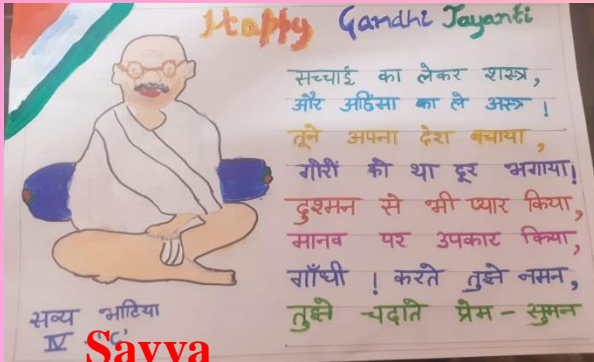 Happy Gandhi Jayanti
सच्चाई का लेकर शस्त्र,
और अहिंसा का ले अस्त्र !
तूने अपना देश बचाया,
गोरों को था दूर भगाया!
दुश्मन से भी प्यार किया,
मानव पर उपकार किया,
गाँधी ! करते तुझे नमन,
तुझे चढ़ाते प्रेम - सुमन
सव्य भाटिया
IV - 'C'
Savya